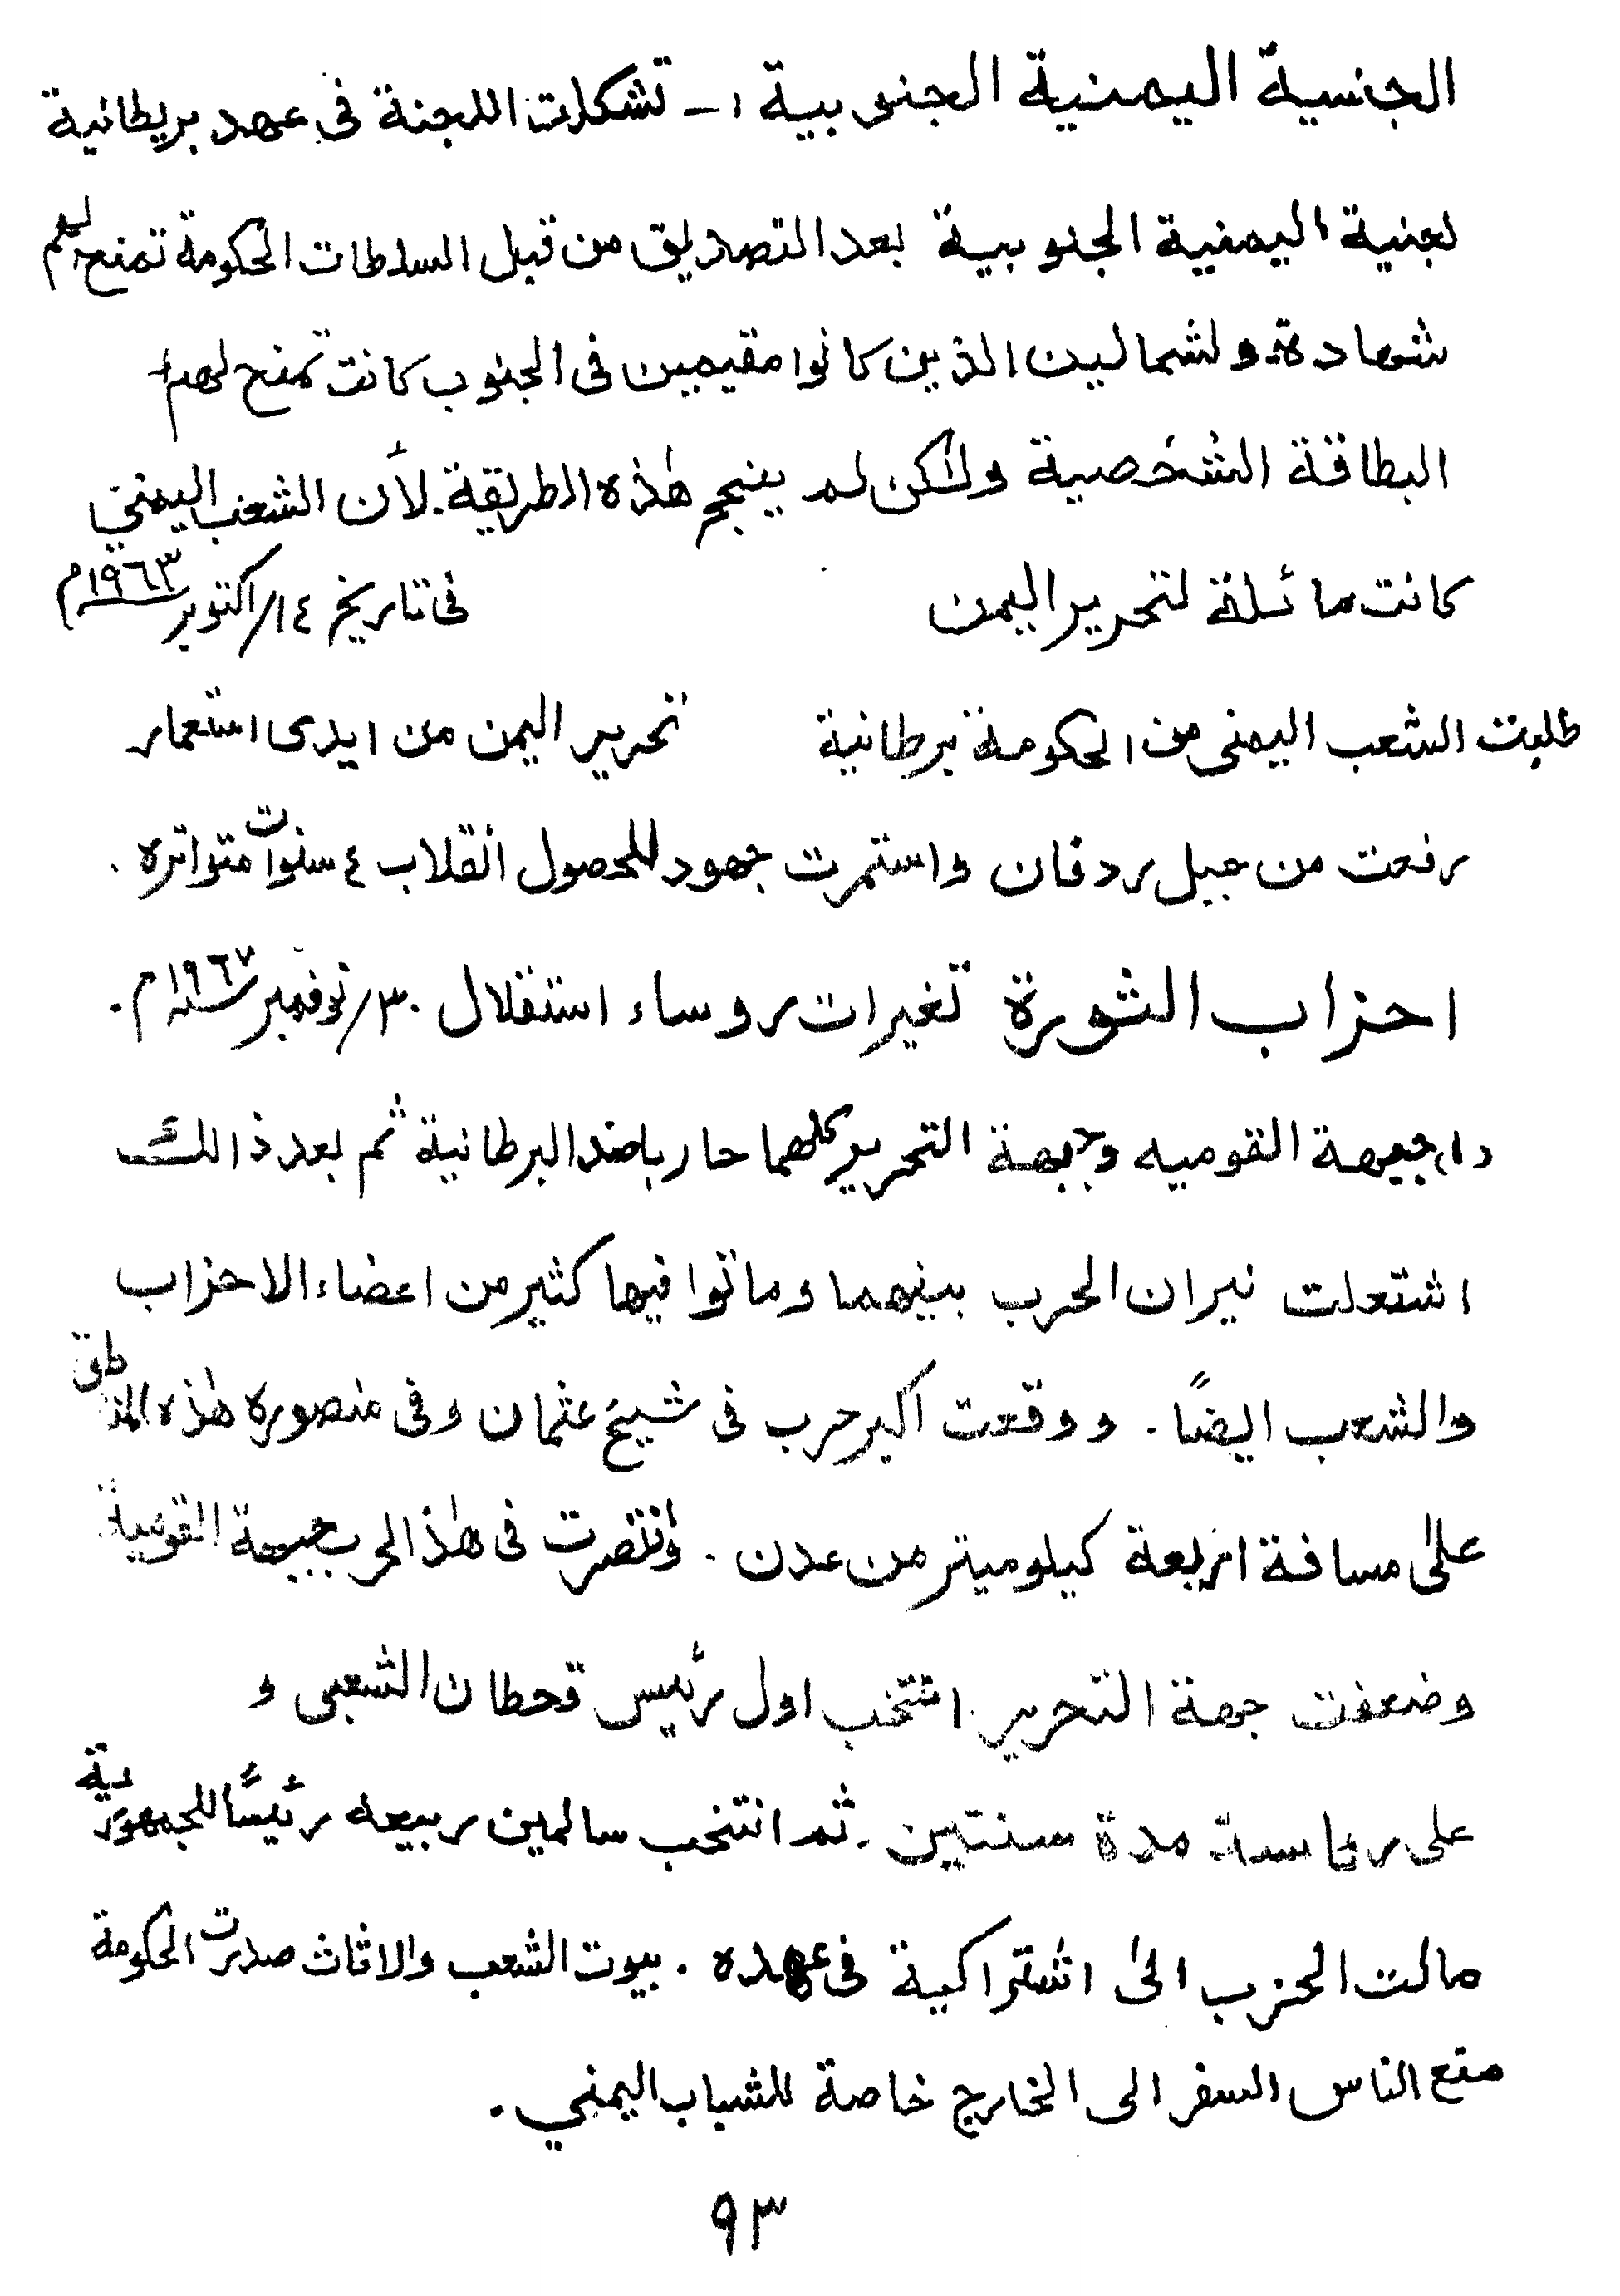 الجنسية اليمنية الجنوبية :ـ تشكلت اللجنة في عهد بريطانية
لجنية اليمنية الجنوبية بعد التصديق من قبل السلطات الحكومة تمنح لهم
شهادة ولشمالين الذين كانوا مقيمين في الجنوب كانت تمنح لهم
البطاقة الشخصية ولكن لم ينجح هذه الطريقة. لأن الشعب اليمني
كانت مائلة لتحرير اليمن في تاريخ ١٤/اكتوبر ١٩٦٣م
طلبت الشعب اليمني من الحكومة برطانية تحرير اليمن من ايدى استعمار
رفعت من جبل ردفان واستمرت جهود للحصول انقلاب ٤ سنوات متواتره .
احزاب الثورة تغيرات روساء استقلال ٣٠/نوفمبر سنة ١٩٦٧م.
(١) جبهة القوميه وجبهة التحرير كلهما حاربا ضد البرطانية ثم بعد ذالك
اشتعلت نيران الحرب بينهما وماتوا فيها كثير من اعضاء الاحزاب
والشعب ايضًا. ووقعت اكبر حرب في شيخ عثمان وفى منصوره هذه المناطق
على مسافة اربعة كيلوميتر من عدن . وانتصرت في هذا الحرب جبهة القومية
وضعفت جهة التحرير. انتخب اول رئيس قحطان الشعبى و
على رئاسة مدة سنتين. ثم انتخب سالمين ربيعه رئيسًا للجمهورية
مالت الحزب الى اشتراكية في عهده . بيوت الشعب والاثاث صدرت الحكومة
منع الناس السفر الى الخارج خاصة للشباب اليمني.
٩٣